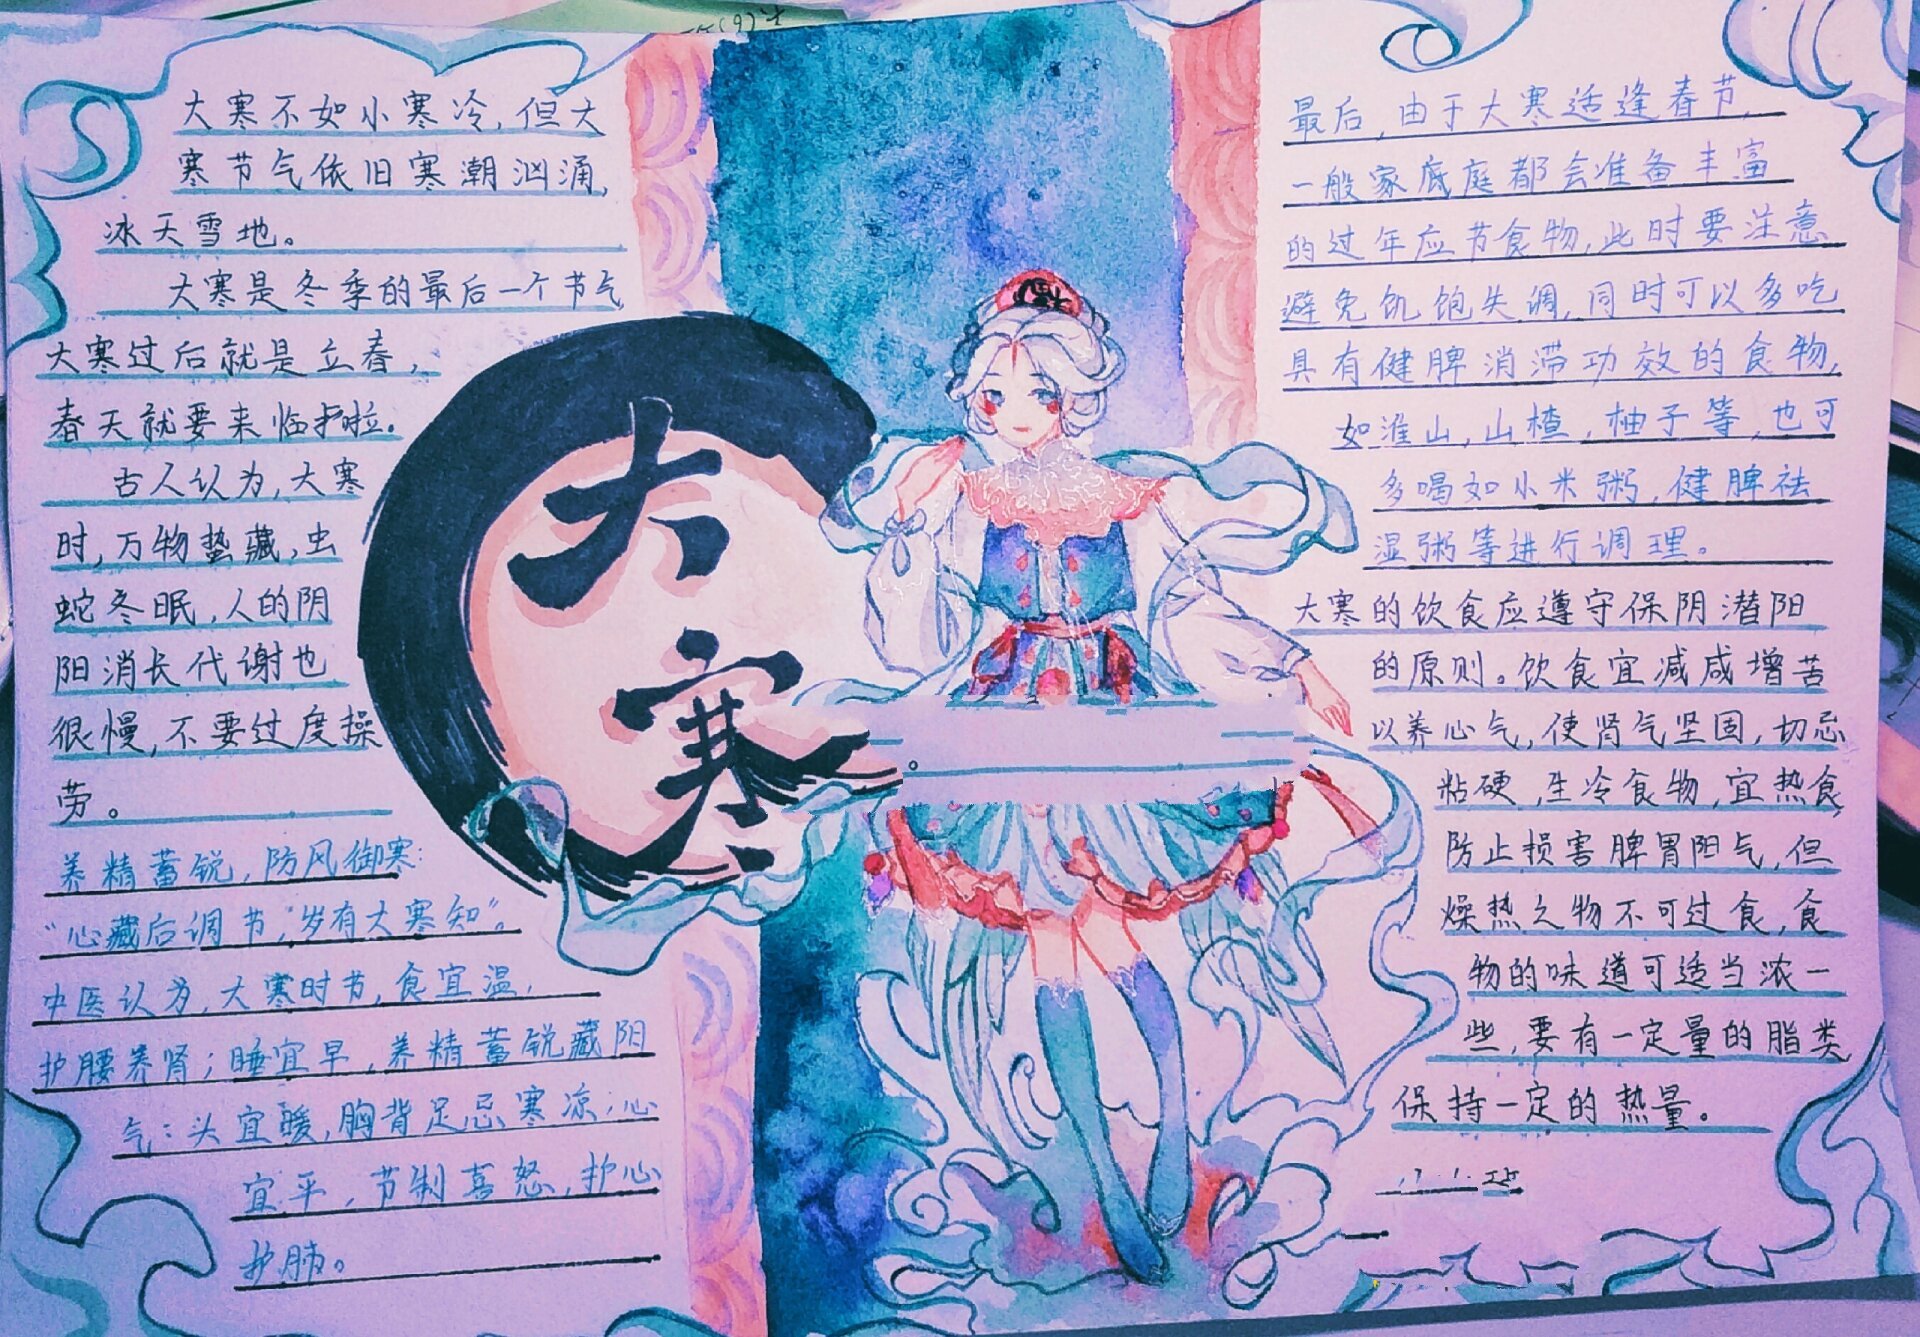 大寒不如小寒冷，但大
寒节气依旧寒潮汹涌，
冰天雪地。
大寒是冬季的最后一个节气
大寒过后就是立春，
春天就要来临啦。
古人认为，大寒
时，万物蛰藏，虫
蛇冬眠，人的阴
阳消长代谢也
很慢，不要过度操
劳。
养精蓄锐，防风御寒：
“心藏后调节，岁有大寒知”。
中医认为，大寒时节，食宜温，
护腰养肾；睡宜早，养精蓄锐藏阳
气：头宜暖，胸背足忌寒凉；心
宜平，节制喜怒，护心
护肺。
大
寒
最后，由于大寒适逢春节，
一般家底庭都会准备丰富
的过年应节食物，此时要注意
避免饥饱失调，同时可以多吃
具有健脾消滞功效的食物，
如淮山，山楂，柚子等，也可
多喝如小米粥，健脾祛
湿粥等进行调理。
大寒的饮食应遵守保阴潜阳
的原则。饮食宜减咸增苦
以养心气，使肾气坚固，切忌
粘硬，生冷食物，宜热食，
防止损害脾胃阳气，但
燥热之物不可过食，食
物的味道可适当浓一
些，要有一定量的脂类
保持一定的热量。